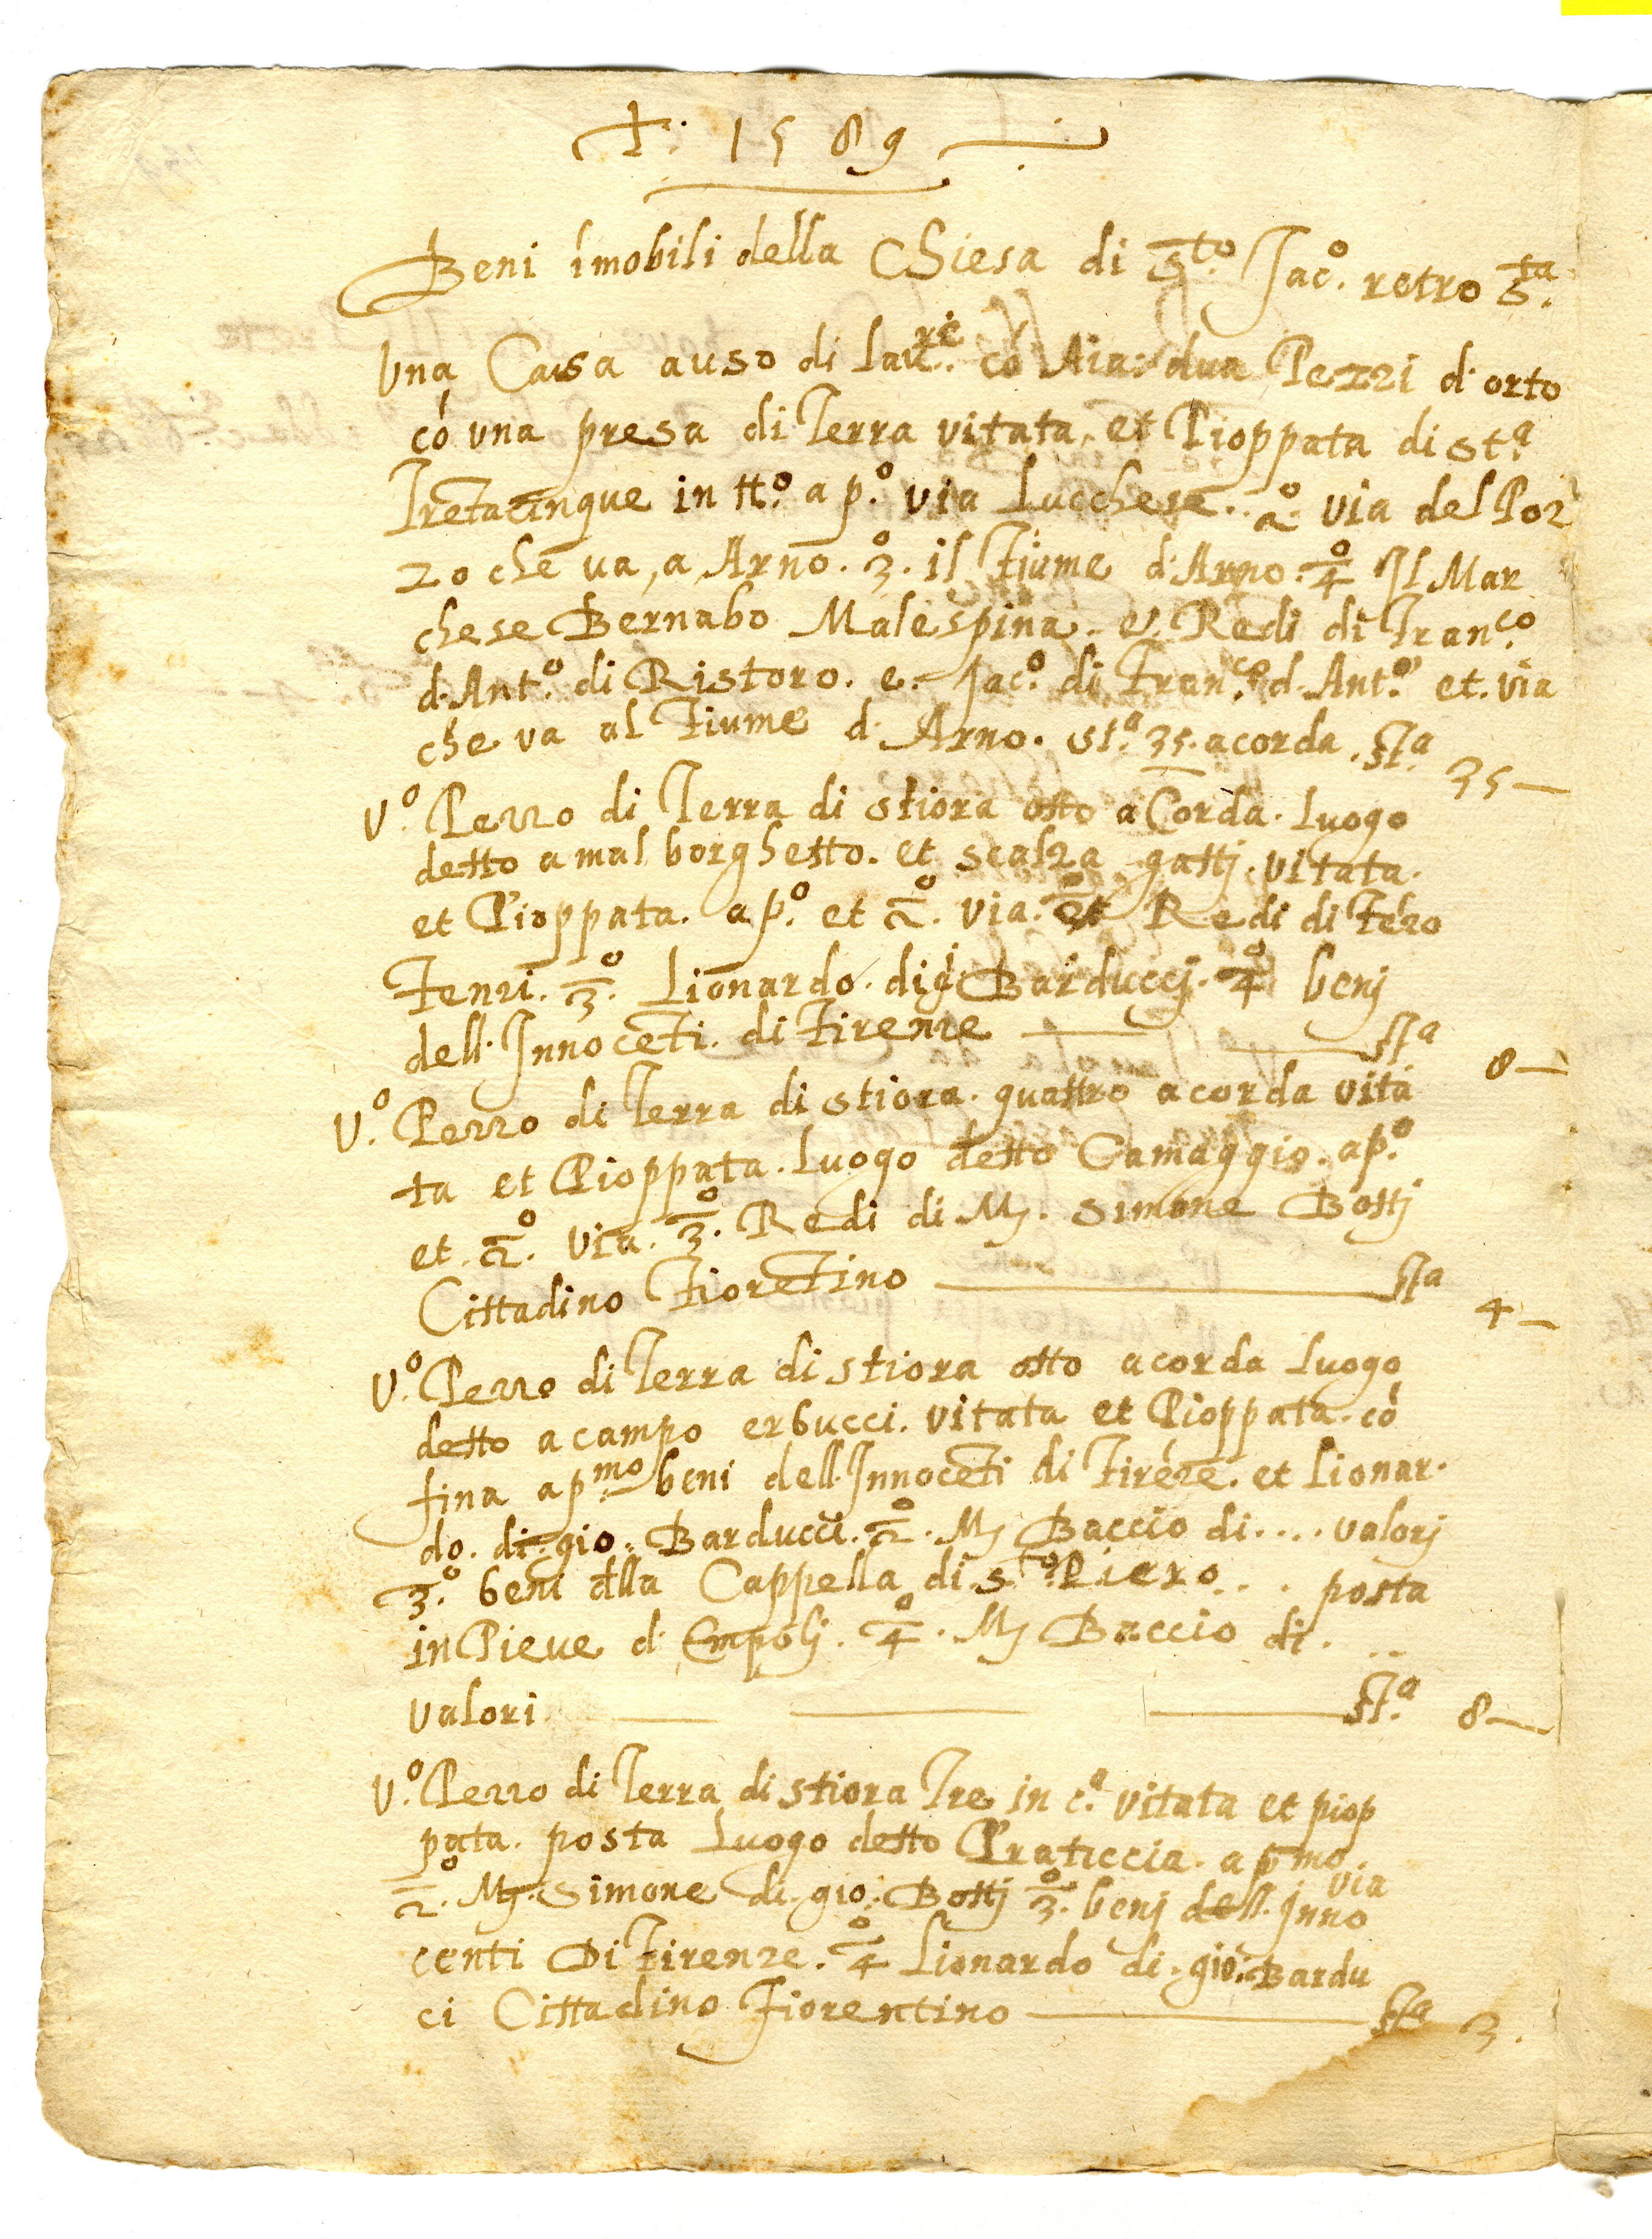 ✝. 1589
Beni imobili della Chiesa di Sto. Jaco. retro Sta.
Una Casa a uso di lavre. có Aia: dua Pezzi d. orto
có una presa di Terra vitata, et Pioppata di sta.
Treta cinque in tto. a po. via Lucchese. 2o. via del Poz
zo che va, a, Arno. 3o. il Fiume d. Arno. 4o Il Mar
chese Bernabo Malespina. e. Redi di Franco.
d. Anto. di Ristoro. e. Jaco. di Franco. d. Anto. et. via
che va al Fiume d. Arno. sta. 35. a corda. sta. 35—
Uo. Pezzo di Terra di stiora otto a Corda. Luogo
detto a mal borghetto. et scalza gattj. vitata.
et Pioppata. a po. et 2o. via. et Redi di Fézo
Fenzi. 3o. Lionardo. di gi Barduccj. 4o benj
dell. Innocēti. di Firenze — sta 8—
Uo. Pezzo di Terra di stiora. quattro a corda vita
ta et Pioppata. Luogo detto Camaggio. a po.
et. 2o. via. 3o. Redi di M. Simone Bottj
Cittadino Fiorētino — sta 4—
Uo. Pezzo di Terra di stiora otto a corda Luogo
detto a campo erbucci. vitata et Pioppata. có
fina a pmo. beni dell. Innocēti di Firéze. et Lionar.
do. di. gio. Barducci. 2o. M Baccio di.... valorj
3o. beni dlla Cappella di Sto. Piero... posta
in Pieve d. Empolj. 4o. M Baccio di. ..
valori — sta. 8—
Uo. Pezzo di Terra di stiora Tre in ca. vitata et piop
pata. posta Luogo detto Praticcia. a pmo.
via
2o. M. Simone di. gio. Bottj 3o. benj dell. Inno
centi Di Firenze. 4o Lionardo di. gio. Bardu
ci Cittadino Fiorentino — sta 3.